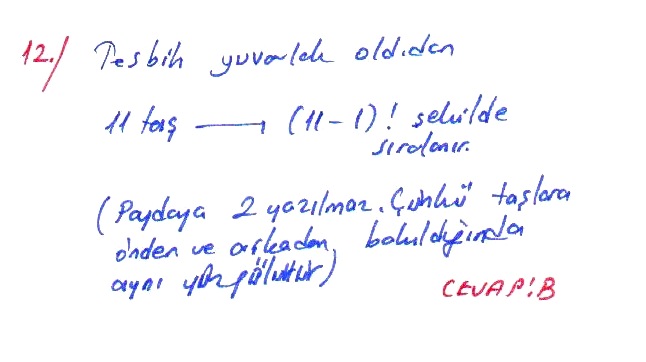 12.) Tesbih yuvarlak old.dan
11 taş → (11-1)! şekilde
sıralanır.
(Paydaya 2 yazılmaz. Çünkü taşlara
önden ve arkadan bakıldığında
aynı yüz görülür)
CEVAP: B